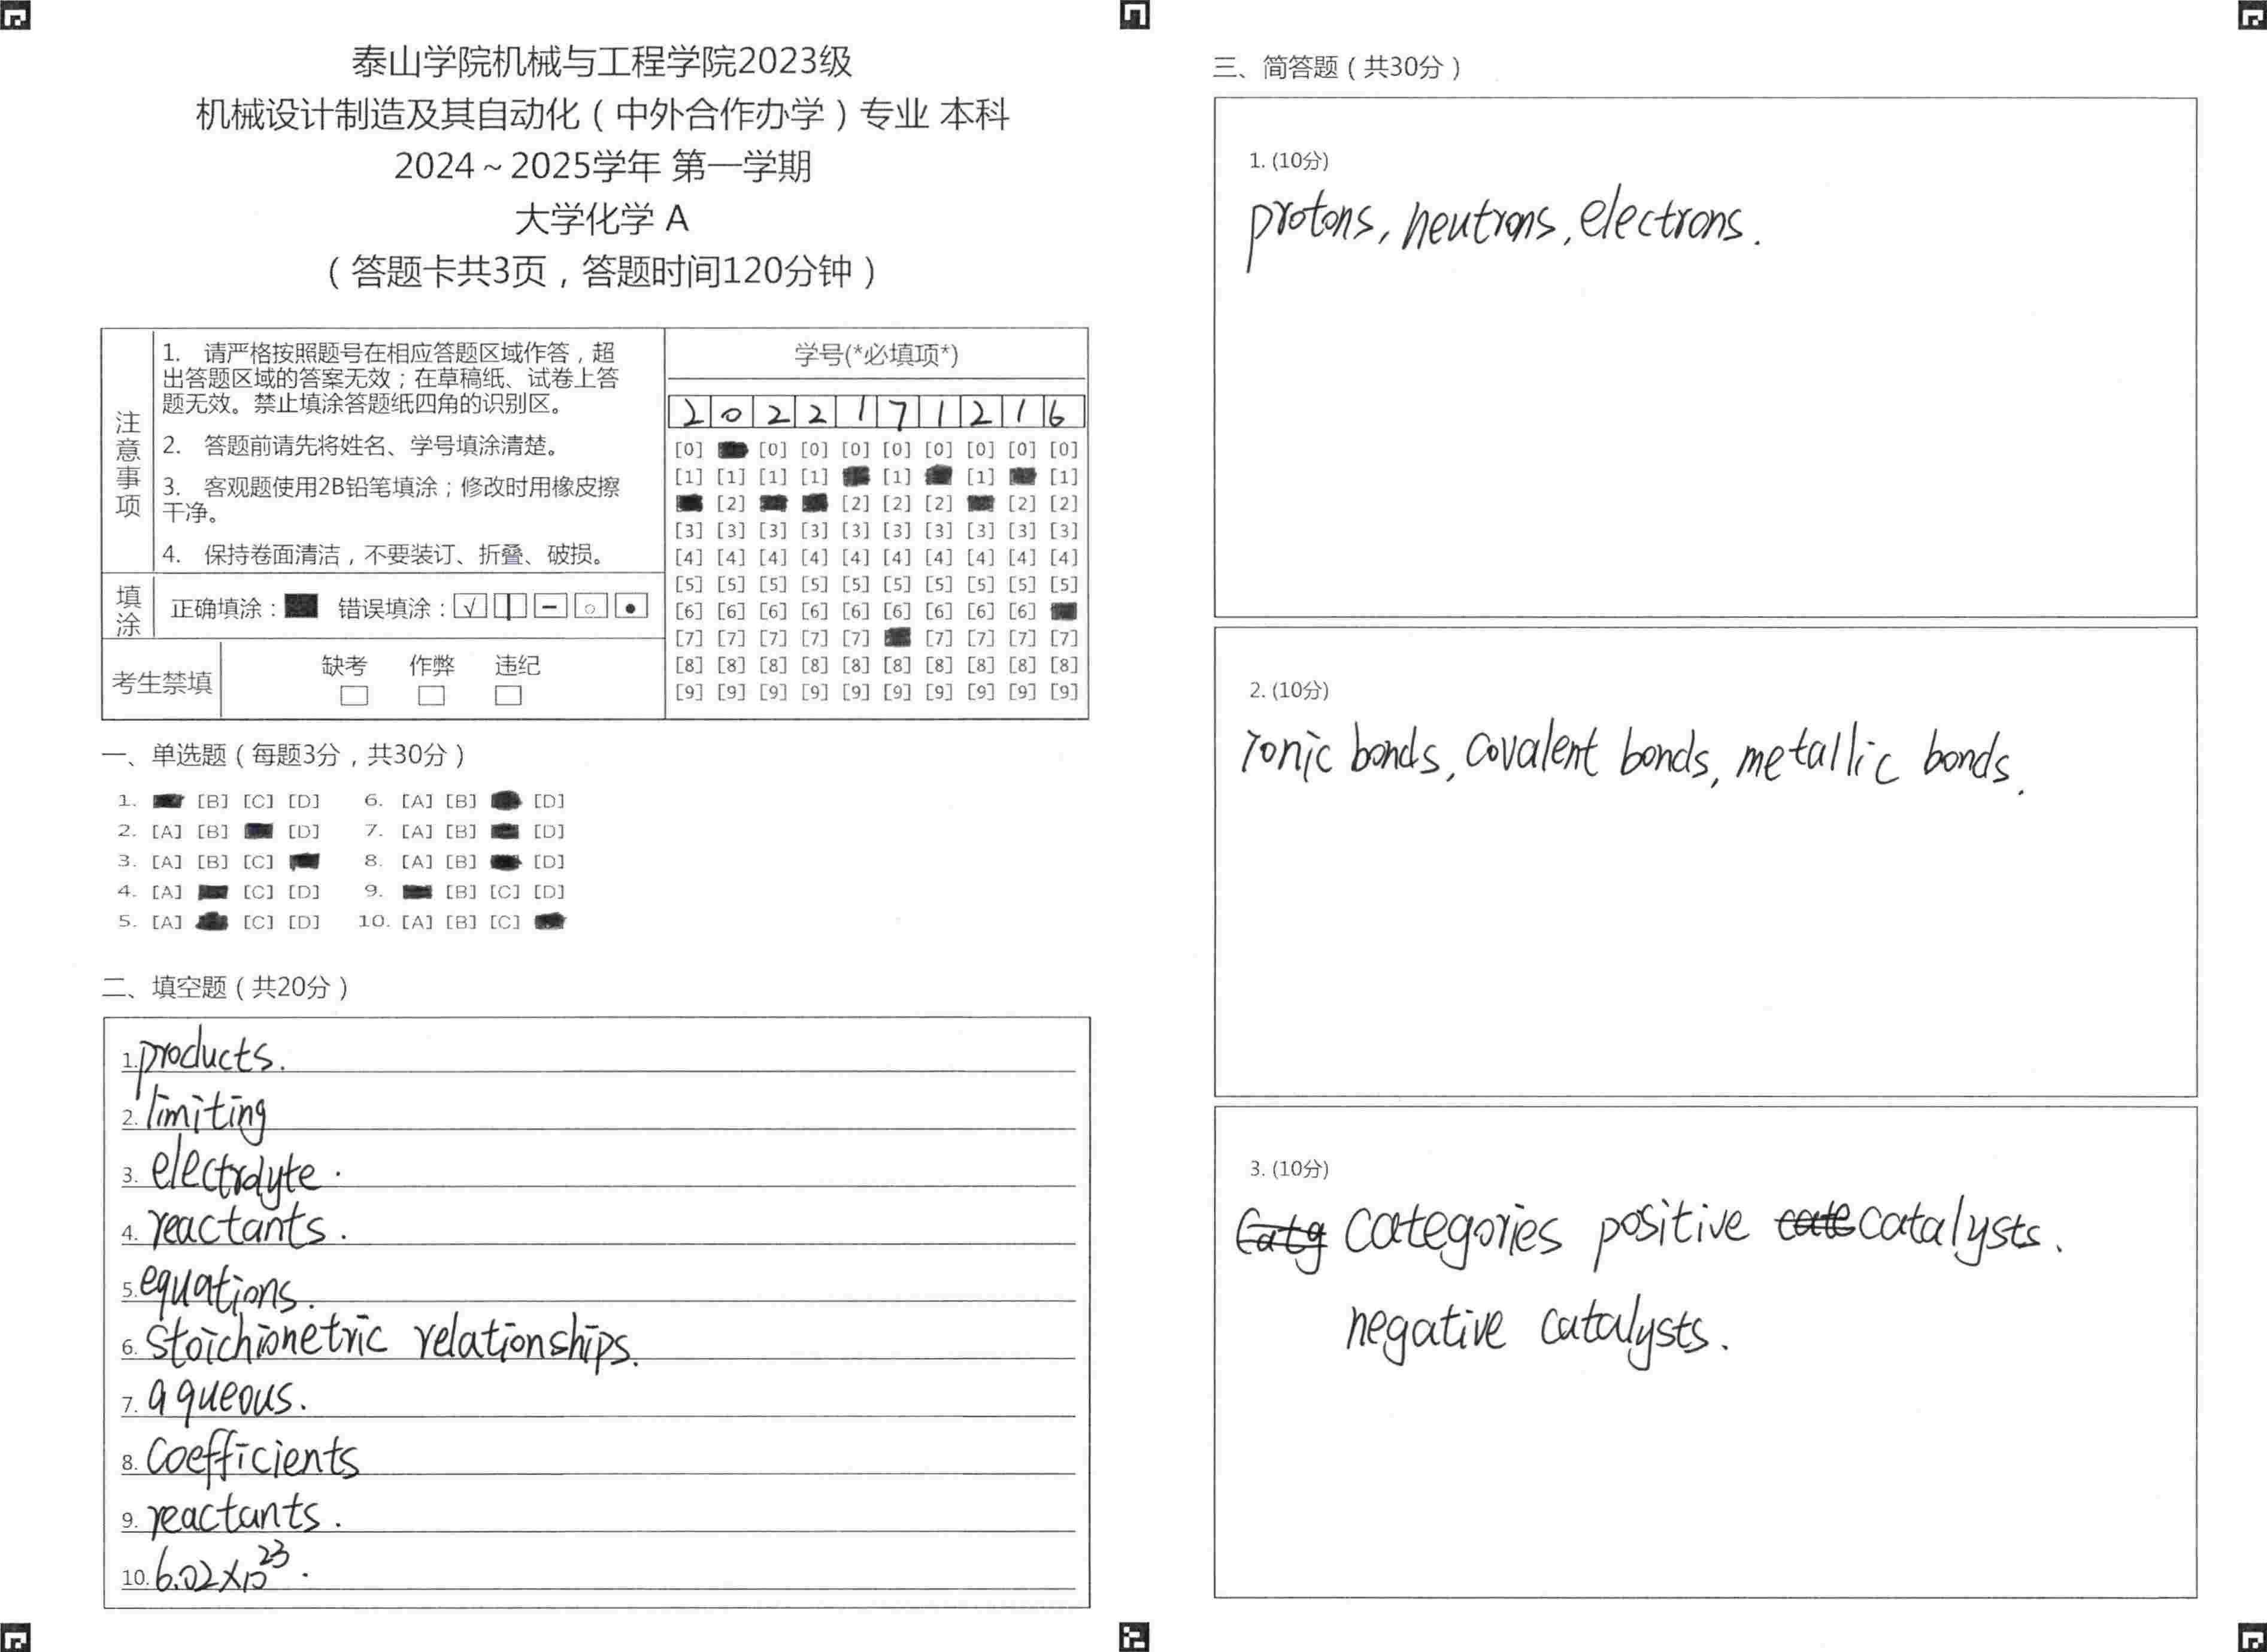 泰山学院机械与工程学院2023级
机械设计制造及其自动化（中外合作办学）专业 本科
2024～2025学年 第一学期
大学化学 A
（答题卡共3页，答题时间120分钟）
注意事项
1. 请严格按照题号在相应答题区域作答，超
出答题区域的答案无效；在草稿纸、试卷上答
题无效。禁止填涂答题纸四角的识别区。
2. 答题前请先将姓名、学号填涂清楚。
3. 客观题使用2B铅笔填涂；修改时用橡皮擦
干净。
4. 保持卷面清洁，不要装订、折叠、破损。
填涂 正确填涂： 错误填涂：
考生禁填 缺考 作弊 违纪
学号(*必填项*)
2 0 2 2 1 7 1 2 1 6
[0] [0] [0] [0] [0] [0] [0] [0] [0]
[1] [1] [1] [1] [1] [1] [1]
[2] [2] [2] [2] [2] [2]
[3] [3] [3] [3] [3] [3] [3] [3] [3] [3]
[4] [4] [4] [4] [4] [4] [4] [4] [4] [4]
[5] [5] [5] [5] [5] [5] [5] [5] [5] [5]
[6] [6] [6] [6] [6] [6] [6] [6] [6]
[7] [7] [7] [7] [7] [7] [7] [7] [7]
[8] [8] [8] [8] [8] [8] [8] [8] [8] [8]
[9] [9] [9] [9] [9] [9] [9] [9] [9] [9]
一、单选题（每题3分，共30分）
1. [B] [C] [D] 6. [A] [B] [D]
2. [A] [B] [D] 7. [A] [B] [D]
3. [A] [B] [C] 8. [A] [B] [D]
4. [A] [C] [D] 9. [B] [C] [D]
5. [A] [C] [D] 10. [A] [B] [C]
二、填空题（共20分）
1. products.
2. limiting
3. electrolyte.
4. reactants.
5. equations.
6. Stoichionetric relationships.
7. aqueous.
8. Coefficients
9. reactants.
10. 6.02×10²³.
三、简答题（共30分）
1. (10分)
protons, neutrons, electrons.
2. (10分)
Ionic bonds, covalent bonds, metallic bonds.
3. (10分)
Categories positive catalysts.
negative catalysts.